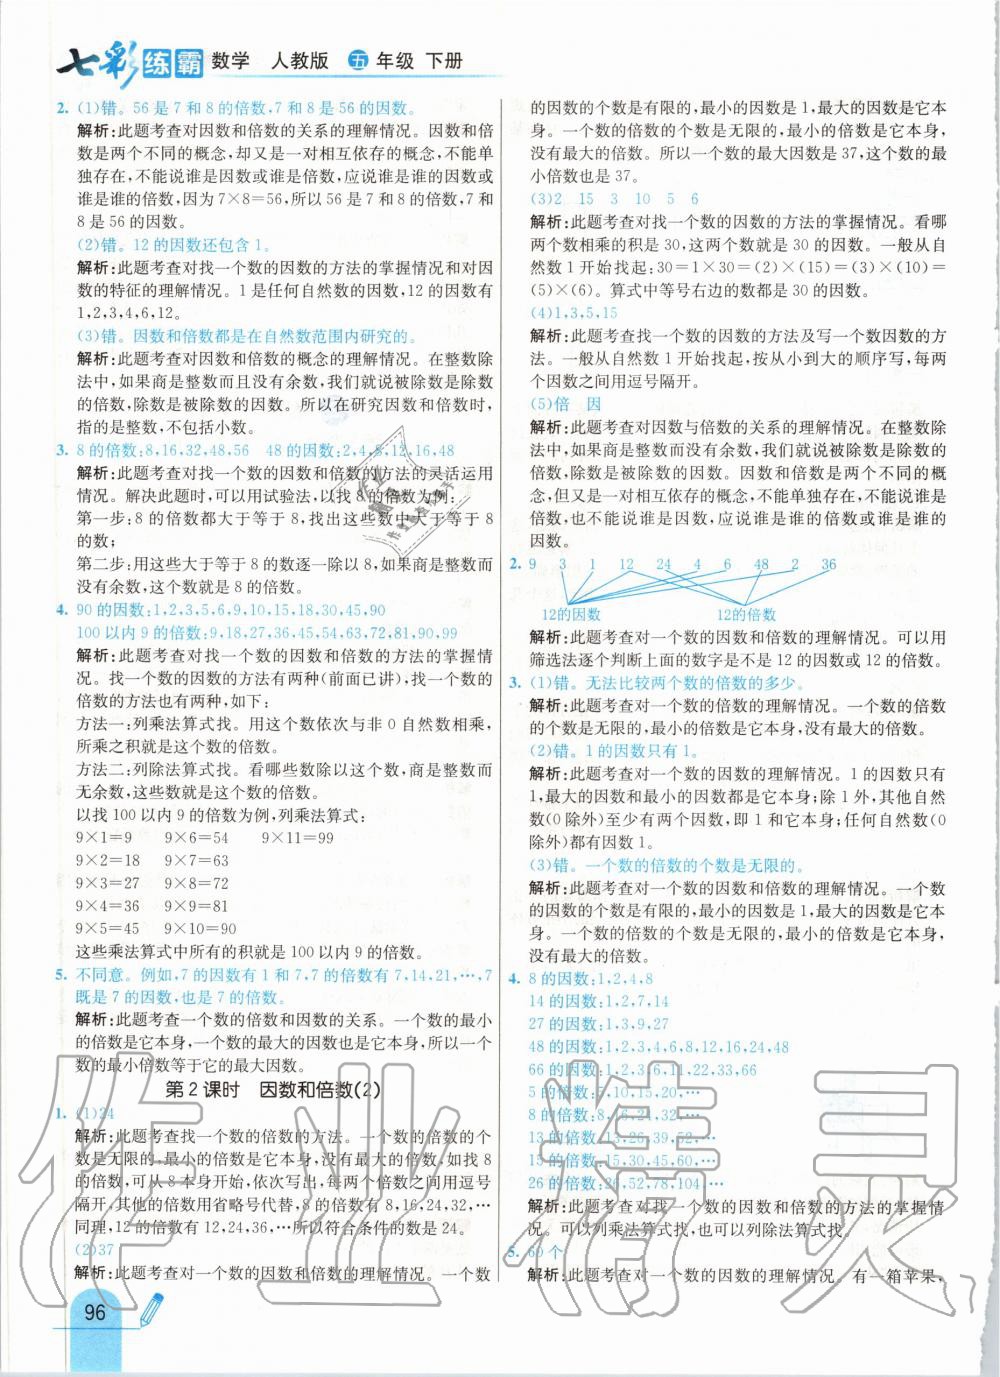 七彩练霸 数学 人教版 五年级 下册
2. (1)错。56 是 7 和 8 的倍数,7 和 8 是 56 的因数。
解析:此题考查对因数和倍数的关系的理解情况。因数和倍
数是两个不同的概念,却又是一对相互依存的概念,不能单
独存在,不能说谁是因数或谁是倍数,应说谁是谁的因数或
谁是谁的倍数,因为 7×8=56,所以 56 是 7 和 8 的倍数,7 和
8 是 56 的因数。
(2)错。12 的因数还包含 1。
解析:此题考查对找一个数的因数的方法的掌握情况和对因
数的特征的理解情况。1 是任何自然数的因数,12 的因数有
1,2,3,4,6,12。
(3)错。因数和倍数都是在自然数范围内研究的。
解析:此题考查对因数和倍数的概念的理解情况。在整数除
法中,如果商是整数而且没有余数,我们就说被除数是除数
的倍数,除数是被除数的因数。所以在研究因数和倍数时,
指的是整数,不包括小数。
3. 8 的倍数:8,16,32,48,56 48 的因数:2,4,8,12,16,48
解析:此题考查对找一个数的因数和倍数的方法的灵活运用
情况。解决此题时,可以用试验法,以找 8 的倍数为例:
第一步:8 的倍数都大于等于 8,找出这些数中大于等于 8
的数;
第二步:用这些大于等于 8 的数逐一除以 8,如果商是整数而
没有余数,这个数就是 8 的倍数。
4. 90 的因数:1,2,3,5,6,9,10,15,18,30,45,90
100 以内 9 的倍数:9,18,27,36,45,54,63,72,81,90,99
解析:此题考查对找一个数的因数和倍数的方法的掌握情
况。找一个数的因数的方法有两种(前面已讲),找一个数的
倍数的方法也有两种,如下:
方法一:列乘法算式找。用这个数依次与非 0 自然数相乘,
所乘之积就是这个数的倍数。
方法二:列除法算式找。看哪些数除以这个数,商是整数而
无余数,这些数就是这个数的倍数。
以找 100 以内 9 的倍数为例,列乘法算式:
9×1=9 9×6=54 9×11=99
9×2=18 9×7=63
9×3=27 9×8=72
9×4=36 9×9=81
9×5=45 9×10=90
这些乘法算式中所有的积就是 100 以内 9 的倍数。
5. 不同意。例如,7 的因数有 1 和 7,7 的倍数有 7,14,21,…,7
既是 7 的因数,也是 7 的倍数。
解析:此题考查一个数的倍数和因数的关系。一个数的最小
的倍数是它本身,一个数的最大的因数也是它本身,一个数
的最小倍数等于它的最大因数。
第 2 课时 因数和倍数(2)
1. (1)24
解析:此题考查找一个数的倍数的方法。一个数的倍数的个
数是无限的,最小的倍数是它本身,没有最大的倍数,如找 8
的倍数,可从 8 本身开始,依次写出,每两个倍数间用逗号
隔开,其他的倍数用省略号代替,8 的倍数有 8,16,24,32,…
同理,12 的倍数有 12,24,36,…所以符合条件的数是 24。
(2)37
解析:此题考查对一个数的因数和倍数的理解情况。一个数
96
的因数的个数是有限的,最小的因数是 1,最大的因数是它本
身。一个数的倍数的个数是无限的,最小的倍数是它本身,
没有最大的倍数。所以一个数的最大因数是 37,这个数的最
小倍数也是 37。
(3)2 15 3 10 5 6
解析:此题考查对找一个数的因数的方法的掌握情况。看哪
两个数相乘的积是 30,这两个数就是 30 的因数。一般从自
然数 1 开始找起:30=1×30=(2)×(15)=(3)×(10)=
(5)×(6)。算式中等号右边的数都是 30 的因数。
(4)1,3,5,15
解析:此题考查找一个数的因数的方法及写一个数因数的方
法。一般从自然数 1 开始找起,按从小到大的顺序写,每两
个因数之间用逗号隔开。
(5)倍 因
解析:此题考查对因数与倍数的关系的理解情况。在整数除
法中,如果商是整数而没有余数,我们就说被除数是除数的
倍数,除数是被除数的因数。因数和倍数是两个不同的概
念,但又是一对相互依存的概念,不能单独存在,不能说谁是
倍数,也不能说谁是因数,应说谁是谁的倍数或谁是谁的
因数。
2. 9 3 1 12 24 4 6 48 2 36
12的因数 12的倍数
解析:此题考查对一个数的因数和倍数的理解情况。可以用
筛选法逐个判断上面的数字是不是 12 的因数或 12 的倍数。
3. (1)错。无法比较两个数的倍数的多少。
解析:此题考查对一个数的倍数的理解情况。一个数的倍数
的个数是无限的,最小的倍数是它本身,没有最大的倍数。
(2)错。1 的因数只有 1。
解析:此题考查对一个数的因数的理解情况。1 的因数只有
1,最大的因数和最小的因数都是它本身;除 1 外,其他自然
数(0 除外)至少有两个因数,即 1 和它本身;任何自然数(0
除外)都有因数 1。
(3)错。一个数的倍数的个数是无限的。
解析:此题考查对一个数的因数和倍数的理解情况。一个数
的因数的个数是有限的,最小的因数是 1,最大的因数是它本
身。一个数的倍数的个数是无限的,最小的倍数是它本身,
没有最大的倍数。
4. 8 的因数:1,2,4,8
14 的因数:1,2,7,14
27 的因数:1,3,9,27
48 的因数:1,2,3,4,6,8,12,16,24,48
66 的因数:1,2,3,6,11,22,33,66
5 的倍数:5,10,15,20,…
8 的倍数:8,16,24,32,…
13 的倍数:13,26,39,52,…
15 的倍数:15,30,45,60,…
26 的倍数:26,52,78,104,…
解析:此题考查对找一个数的因数和倍数的方法的掌握情
况。可以列乘法算式找,也可以列除法算式找。
5. 60 个
解析:此题考查对一个数的因数的理解情况。有一箱苹果,
作业精灵